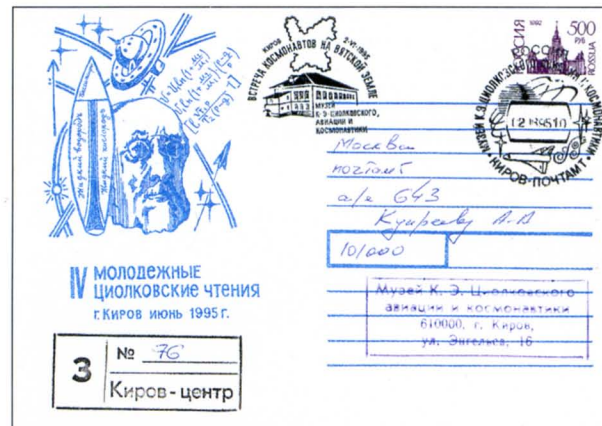 Жидкий водородъ
Жидкий кислородъ
IV МОЛОДЕЖНЫЕ
ЦИОЛКОВСКИЕ ЧТЕНИЯ
г. КИРОВ ИЮНЬ 1995 г.
З
№ 76
Киров-центр
КИРОВ 2-VI-1995
ВСТРЕЧА КОСМОНАВТОВ НА ВЯТСКОЙ ЗЕМЛЕ
МУЗЕЙ
К.Э.ЦИОЛКОВСКОГО,
АВИАЦИИ И
КОСМОНАВТИКИ
РОССИЯ 1992 500
РУБ
ROSSIJA
РОССИЯ
МУЗЕЙ К.Э. ЦИОЛКОВСКОГО КОСМОНАВТИКИ
КИРОВ-ПОЧТАМТ
Москва
почтамт
а/я 643
101000
Музей К. Э. Циолковского
авиации и космонавтики
610000, г. Киров,
ул. Энгельса, 16